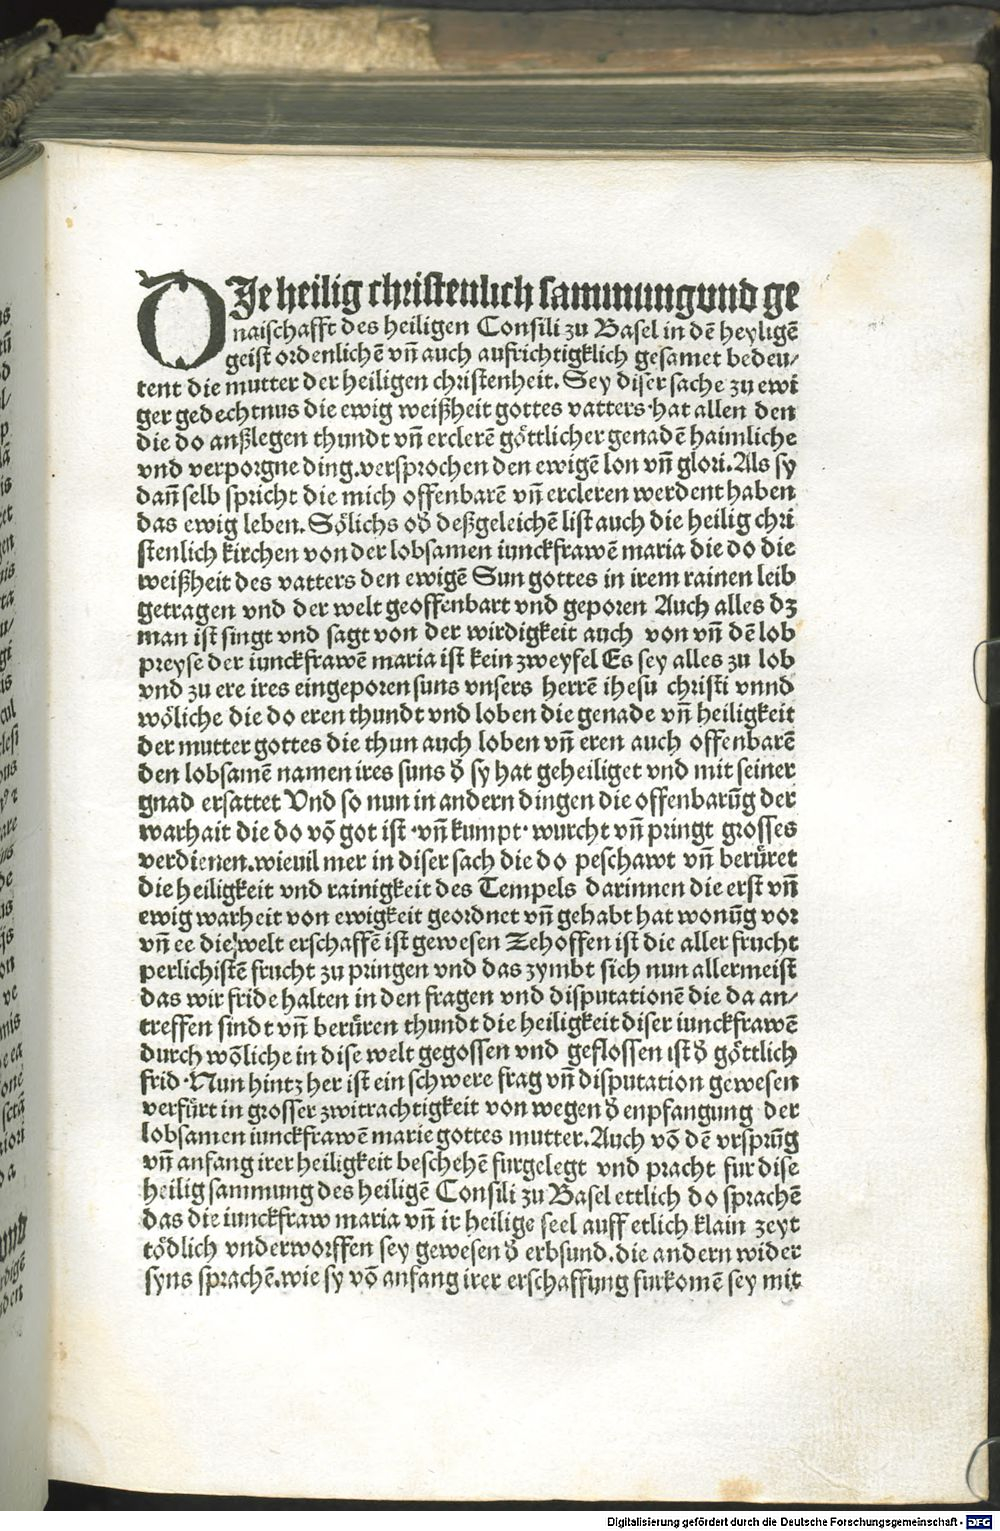 DJe heilig christenlich sammung vnd ge
naischafft des heiligen Consili zu Basel in dē heyligē
geist ordenlichē vñ auch aufrichtigklich gesamet bedeu⸗
tent die mutter der heiligen christenheit. Sey diser sache zu ewi
ger gedechtnus die ewig weißheit gottes vatters·hat allen den
die do anßlegen thundt vñ erclerē göttlicher genadē haimliche
vnd verporgne ding.versprochen den ewigē lon vñ glori.Als sy
dañ selb spricht die mich offenbarē vñ ercleren werdent haben
das ewig leben. Sölichs oď deßgeleichē list auch die heilig chri
stenlich kirchen von der lobsamen iunckfrawē maria die do die
weißheit des vatters den ewigē Sun gottes in irem rainen leib
getragen vnd der welt geoffenbart vnd geporen Auch alles dz
man ist singt vnd sagt von der wirdigkeit auch von vñ dē lob
preyse der iunckfrawē maria ist kein zweyfel Es sey alles zu lob
vnd zu ere ires eingeporen suns vnsers herrē ihesu christi vnnd
wöliche die do eren thundt vnd loben die genade vñ heiligkeit
der mutter gottes die thun auch loben vñ eren auch offenbarē
den lobsamē namen ires suns ď sy hat geheiliget vnd mit seiner
gnad ersattet Vnd so nun in andern dingen die offenbarūg der
warhait die do vō got ist ·vñ kumpt· wurcht vñ pringt grosses
verdienen.wieuil mer in diser sach die do peschawt vñ berüret
die heiligkeit vnd rainigkeit des Tempels darinnen die erst vñ
ewig warheit von ewigkeit geordnet vñ gehabt hat wonūg vor
vñ ee die welt erschaffē ist gewesen Zehoffen ist die aller frucht
perlichistē frucht zu pringen vnd das zymbt sich nun allermeist
das wir fride halten in den fragen vnd disputationē die da an⸗
treffen sindt vñ berüren thundt die heiligkeit diser iunckfrawē
durch wöliche in dise welt gegossen vnd geflossen ist ď göttlich
frid ·Nun hintz her ist ein schwere frag vñ disputation gewesen
verfürt in grosser zwitrachtigkeit von wegen ď enpfangung der
lobsamen iunckfrawē marie gottes mutter.Auch vō dē vrsprūg
vñ anfang irer heiligkeit beschehē furgelegt vnd pracht fur dise
heilig sammung des heiligē Consili zu Basel ettlich do sprachē
das die iunckfraw maria vñ ir heilige seel auff etlich klain zeyt
tödlich vnderworffen sey gewesen ď erbsund.die andern wider
syns sprachē.wie sy vō anfang irer erschaffung furkomē sey mit
Digitalisierung gefördert durch die Deutsche Forschungsgemeinschaft - DFG